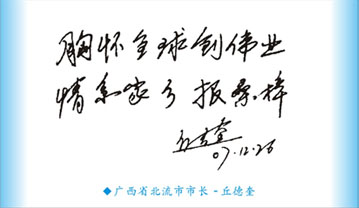 胸怀全球创伟业
情系家乡报桑梓
丘德奎
07.12.26
◆广西省北流市市长-丘德奎